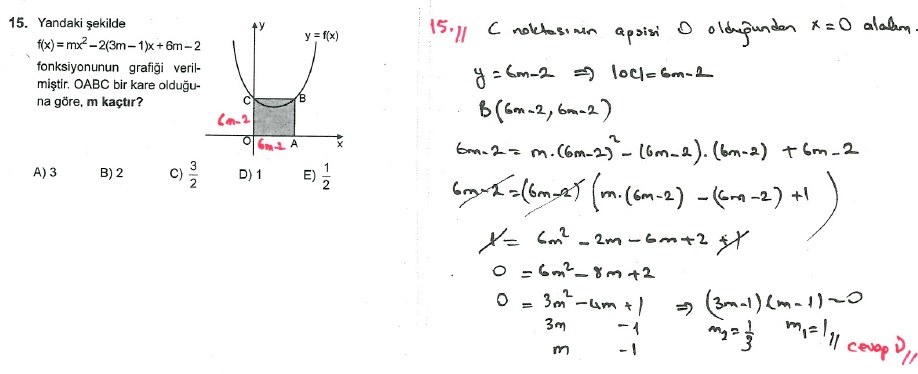 15. Yandaki şekilde
f(x) = mx² – 2(3m – 1)x + 6m – 2
fonksiyonunun grafiği veril-
miştir. OABC bir kare olduğu-
na göre, m kaçtır?
y
y = f(x)
C
B
6m-2
O
6m-2
A
x
A) 3 B) 2 C) 3/2 D) 1 E) 1/2
15.// C noktasının apsisi 0 olduğundan x=0 alalım.
y = 6m-2 ⇒ |OC| = 6m-2
B(6m-2, 6m-2)
6m-2 = m.(6m-2)² - (6m-2).(6m-2) + 6m-2
6m-2 = (6m-2) (m.(6m-2) - (6m-2) + 1)
1 = 6m² - 2m - 6m + 2 + 1
0 = 6m² - 8m + 2
0 = 3m² - 4m + 1 ⇒ (3m-1)(m-1) = 0
3m -1 m₂ = 1/3 m₁ = 1//
m -1
cevap D//